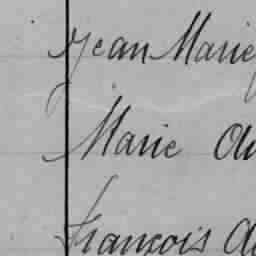 Jean Marie
Marie
François